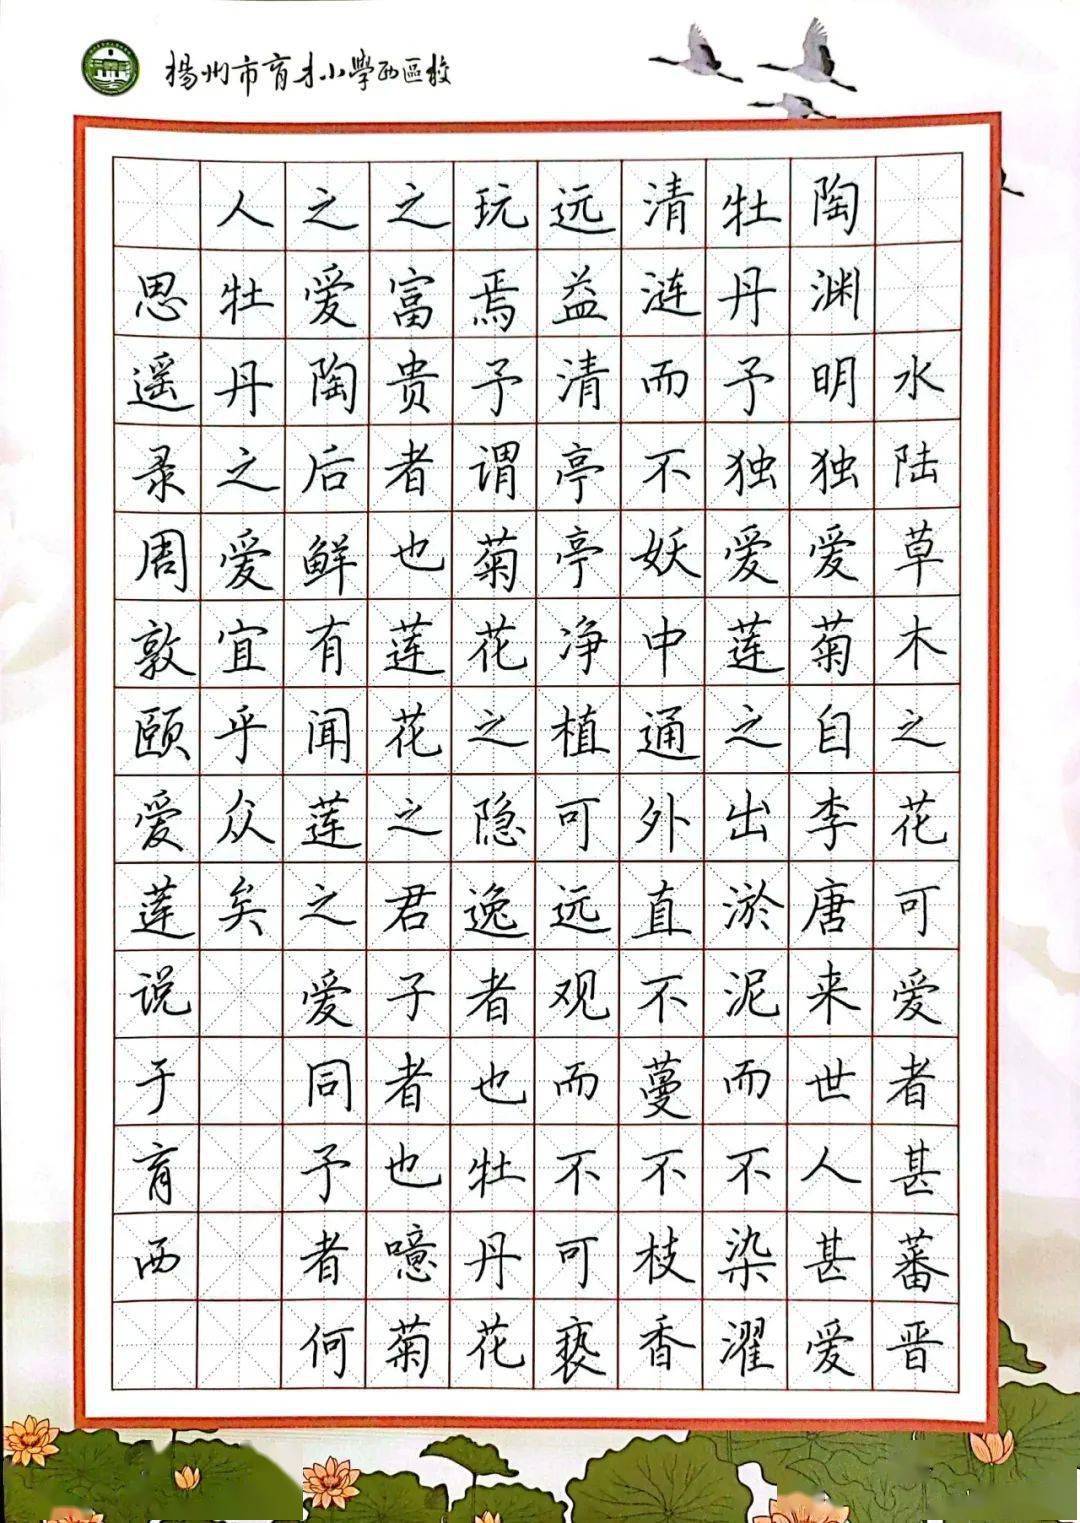 揚州市育才小學西區校
水陆草木之花可爱者甚蕃晋
陶渊明独爱菊自李唐来世人甚爱
牡丹予独爱莲之出淤泥而不染濯
清涟而不妖中通外直不蔓不枝香
远益清亭亭净植可远观而不可亵
玩焉予谓菊花之隐逸者也牡丹花
之富贵者也莲花之君子者也噫菊
之爱陶后鲜有闻莲之爱同予者何
人牡丹之爱宜乎众矣
思遥录周敦颐爱莲说于育西